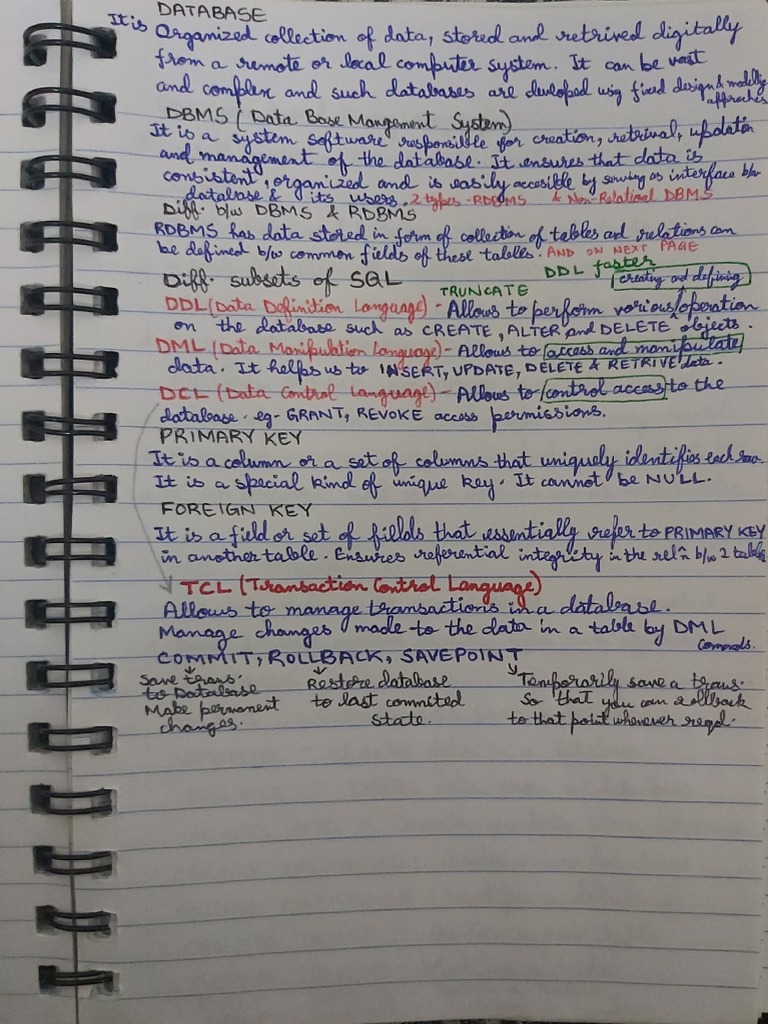 DATABASE
It is Organized collection of data, stored and retrived digitally
from a remote or local computer system. It can be vast
and complex and such databases are developed using fixed design & modelling
approaches
DBMS (Data Base Mangement System)
It is a system software responsible for creation, retrival, updation
and management of the database. It ensures that data is
consistent, organized and is easily accesible by serving as interface b/w
database & its users. 2 types - RDBMS & Non-Relational DBMS
Diff. b/w DBMS & RDBMS
RDBMS has data stored in form of collection of tables and relations can
be defined b/w common fields of these tables. AND ON NEXT PAGE
DDL faster
Diff. subsets of SQL TRUNCATE creating and defining
DDL (Data Definition Language) - Allows to perform various operation
on the database such as CREATE, ALTER and DELETE ^ objects.
DML (Data Manipulation Language) - Allows to access and manipulate
data. It helps us to INSERT, UPDATE, DELETE & RETRIVE data.
DCL (Data Control Language) - Allows to control access to the
database. eg- GRANT, REVOKE access permissions.
PRIMARY KEY
It is a column or a set of columns that uniquely identifies each row.
It is a special kind of unique key. It cannot be NULL.
FOREIGN KEY
It is a field or set of fields that essentially refer to PRIMARY KEY
in another table. Ensures referential integrity in the reln b/w 2 tables
TCL (Transaction Control Language)
Allows to manage transactions in a database.
Manage changes made to the data in a table by DML
Commands.
COMMIT, ROLLBACK, SAVEPOINT
Save trans. Restore database Temporarily save a trans.
to Database to last commited So that you can rollback
Make permanent state. to that point whenever reqd.
changes.